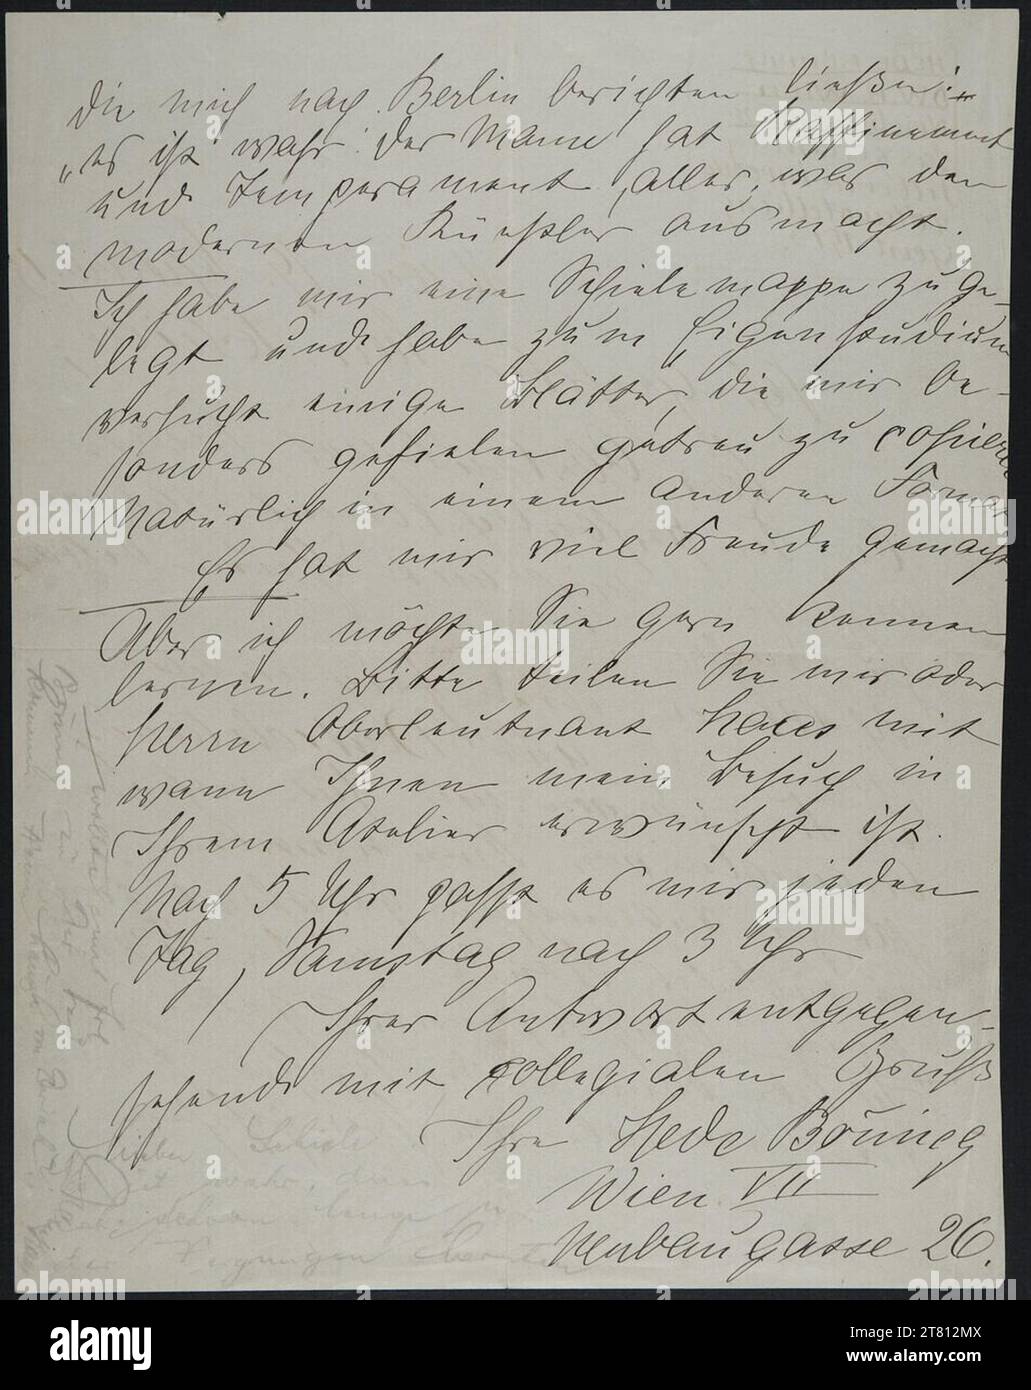 die mich nach Berlin berichten ließen:
„es ist wahr: der Mann hat Raffinement
und Temperament, alles, was den
modernen Künstler ausmacht.
Ich habe mir eine Schielemappe zuge-
legt und habe zum Eigenstudium
versucht einige Blätter, die mir be-
sonders gefielen getreu zu copieren
Natürlich in einem anderen Format
Es hat mir viel Freude gemacht.
Aber ich möchte Sie gern kennen
lernen. Bitte teilen Sie mir oder
Herrn Oberleutnant mit
wann Ihnen mein Besuch in
Ihrem Atelier erwünscht ist.
Nach 5 Uhr passt es mir jeden
Tag, Samstag nach 3 Uhr
Ihrer Antwort entgegen-
sehend mit collegialen Gruß
Ihre Hede
Wien VII
Neubaugasse 26.
lieber Schiele
alamy
Image ID: 2T812MX
www.alamy.com